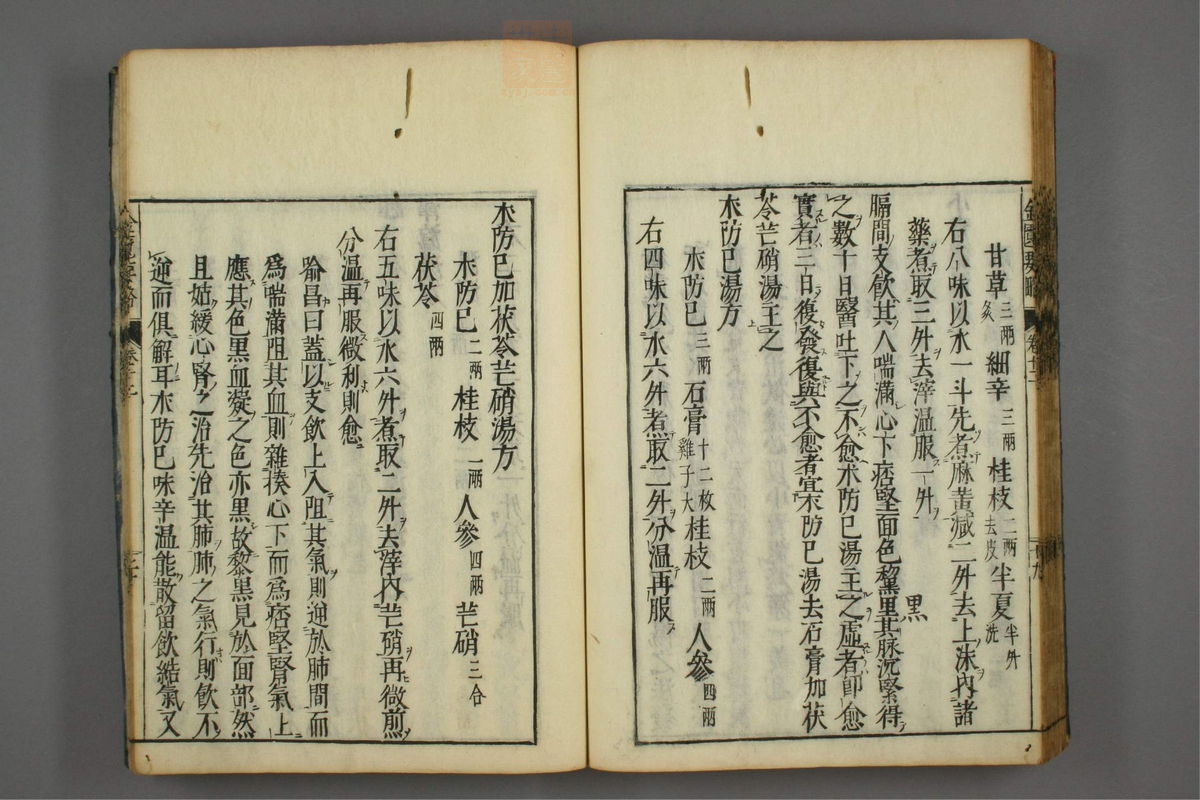 甘草三兩炙細辛三兩桂枝二兩去皮半夏半升洗
右八味以水一斗先煮麻黃減二升去上沫內諸
藥煮取三升去滓溫服一升
膈間支飲其人喘滿心下痞堅面色黧黑其脉沉緊得
黑
之數十日醫吐下之不愈木防已湯主之虛者即愈
實者三日復發復與不愈者宜木防已湯去石膏加茯
苓芒硝湯主之
木防已湯方
木防已三兩石膏十二枚雞子大桂枝二兩人參四兩
右四味以水六升煮取二升分溫再服
木防已加茯苓芒硝湯方
木防已二兩桂枝二兩人參四兩芒硝三合
茯苓四兩
右五味以水六升煮取二升去滓內芒硝再微煎
分溫再服微利則愈
喻昌曰蓋以支飲上入阻其氣則逆於肺間而
爲喘滿阻其血則雜揉心下而爲痞堅腎氣上
應其色黑血凝之色亦黑故黎黑見於面部然
且姑緩心腎之治先治其肺肺之氣行則飲不
逆而俱解耳木防已味辛溫能散留飲結氣又